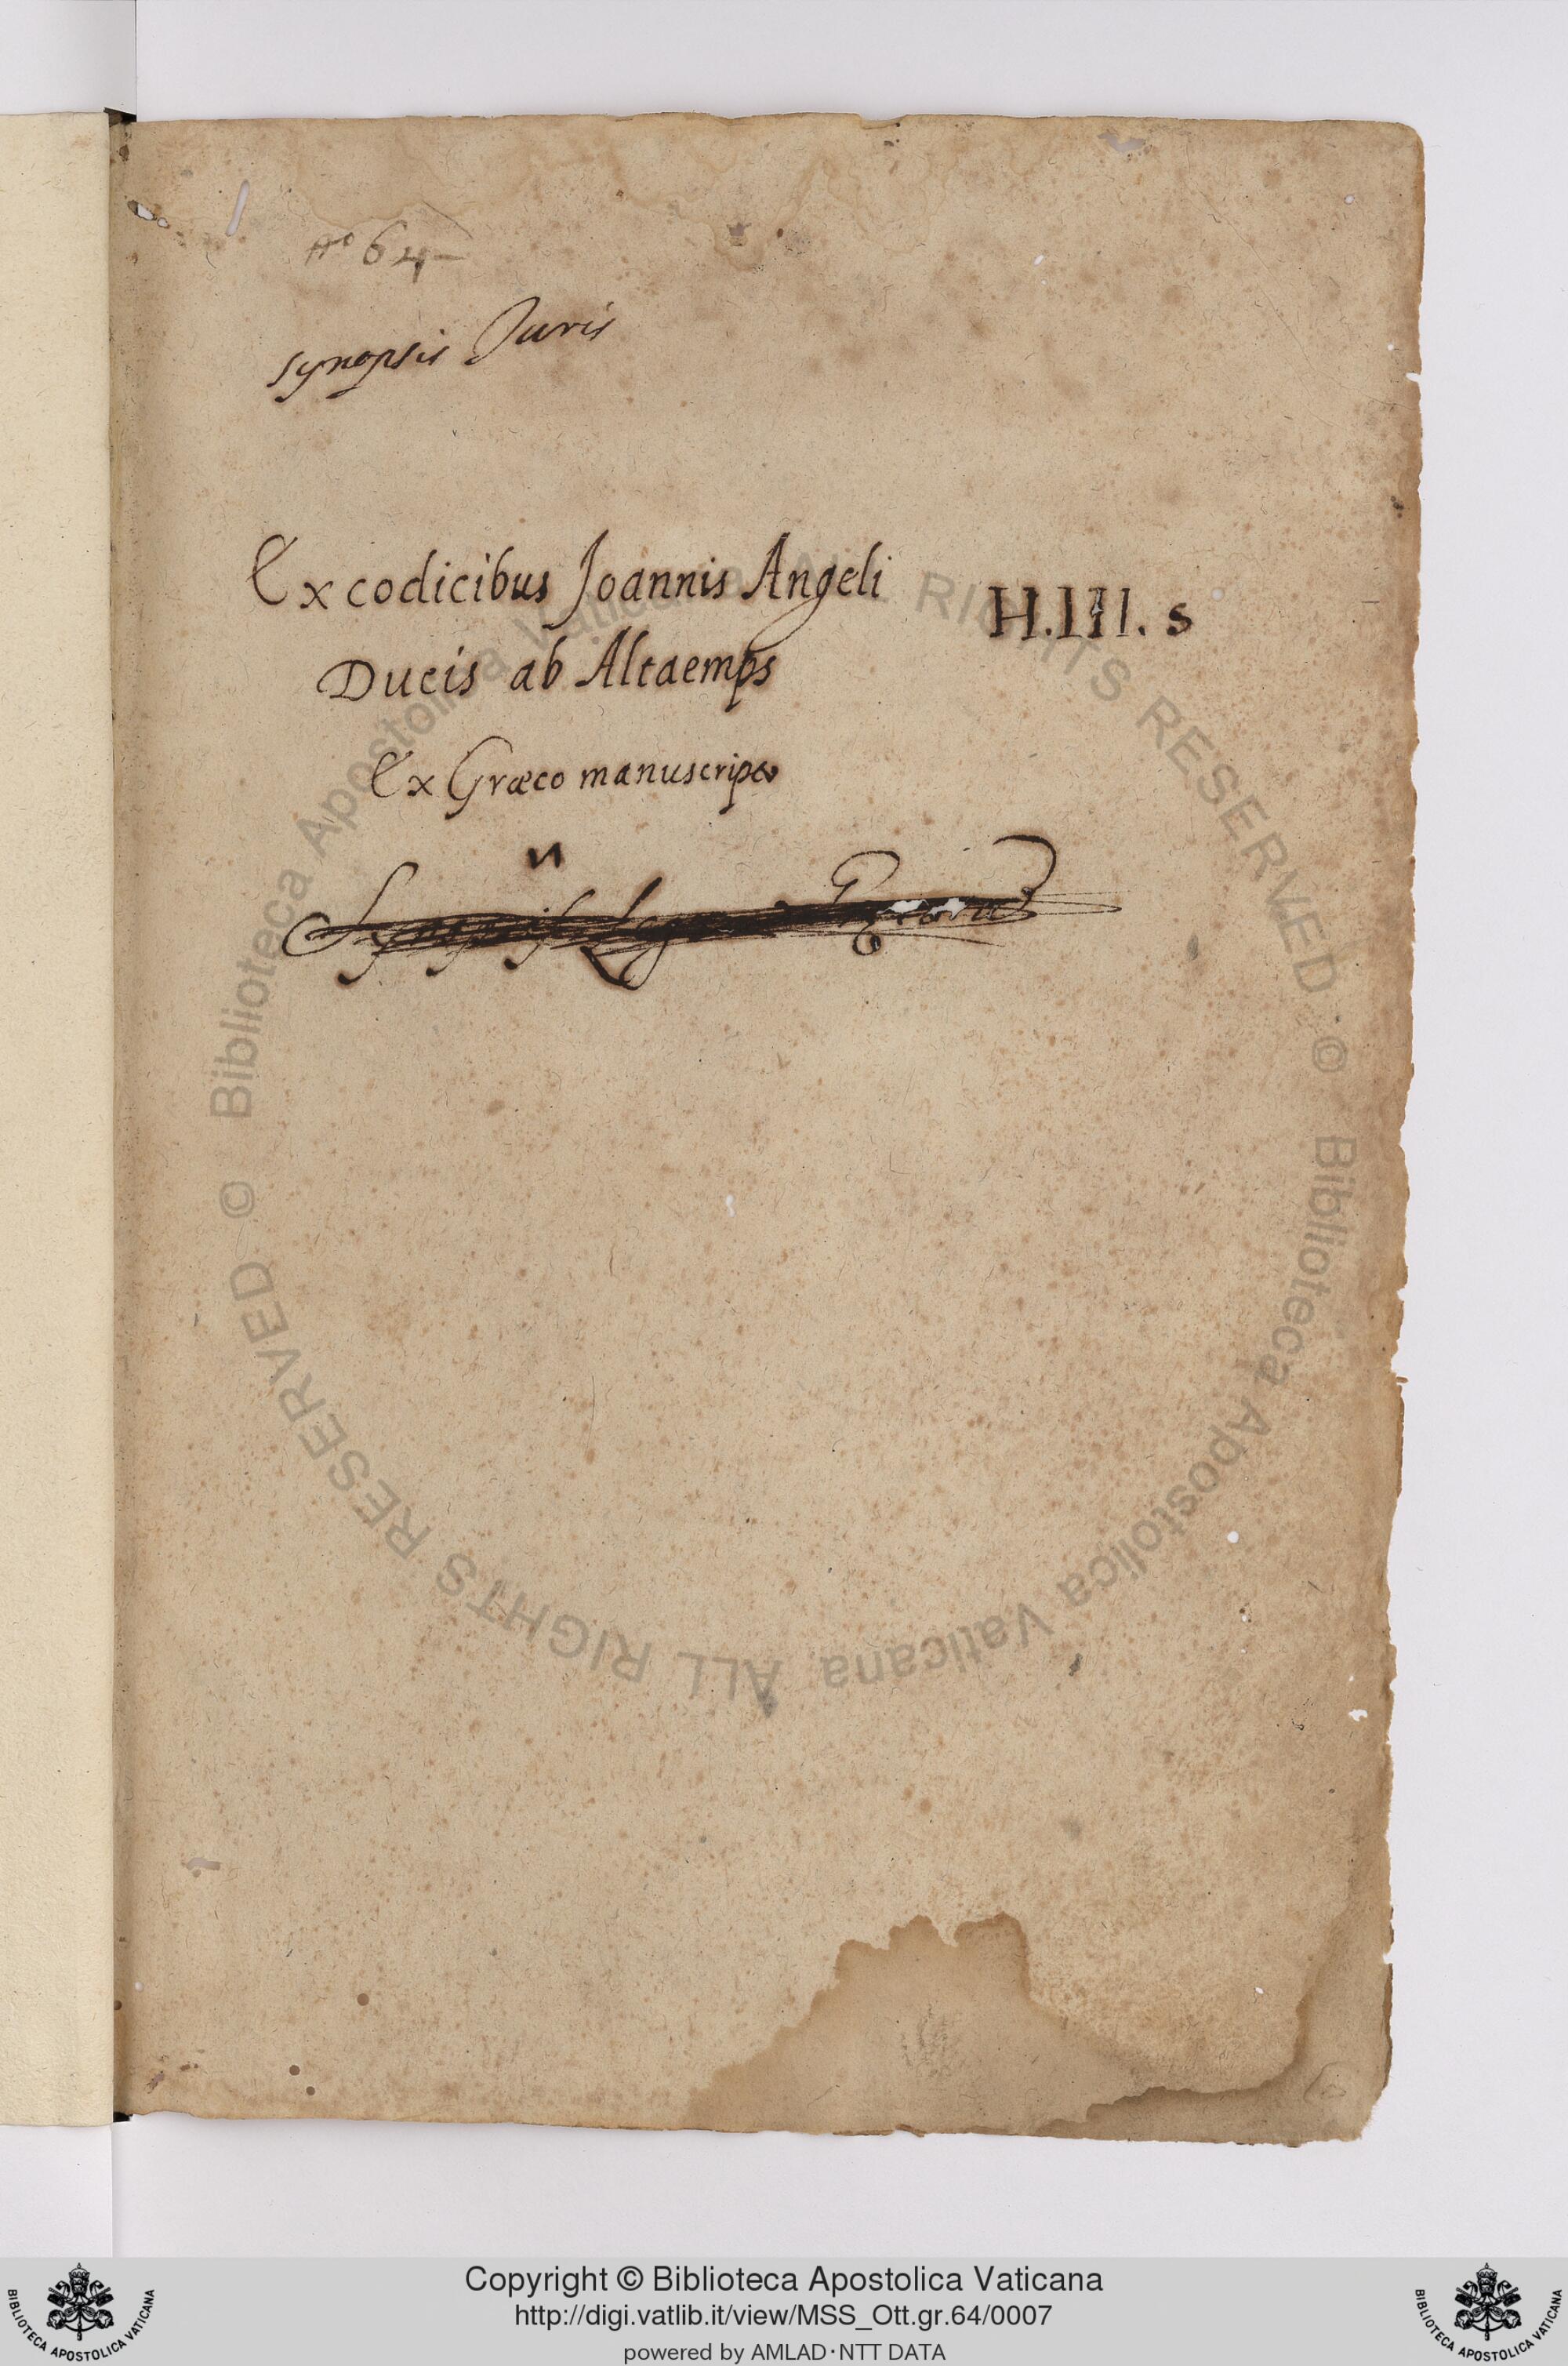 nº 64
synopsis Juris
Ex codicibus Joannis Angeli
H.III. s
Ducis ab Altaemps
Ex Græco manuscripto
Synopsis
© Biblioteca Apostolica Vaticana ALL RIGHTS RESERVED
© Biblioteca Apostolica Vaticana ALL RIGHTS RESERVED
Copyright © Biblioteca Apostolica Vaticana
http://digi.vatlib.it/view/MSS_Ott.gr.64/0007
powered by AMLAD·NTT DATA
BIBLIOTECA APOSTOLICA VATICANA
BIBLIOTECA APOSTOLICA VATICANA